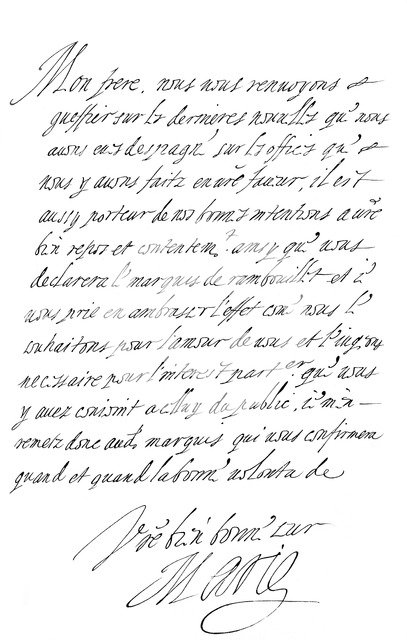 Mon frere, nous vous renuoyons
gueffier sur les dernieres nouuelles que nous
auons eues despagne sur les offices que
nous y auons faitz en vre faueur, il est
aussy porteur de nos bonnes intentions a vre
bien repos et contentemt. ainsy que vous
declarera le marquis de rambouillet et ie
vous prie en ambrasser l'effet come nous le
souhaitons pour l'amour de vous et le iugeons
necessaire pour l'interest parter que vous
y auez conioint a celluy du public, ie m'en
remetz donc audt marquis qui vous confirmera
quand et quand la bonne volonta de
Vre bien bonne sur
Marie